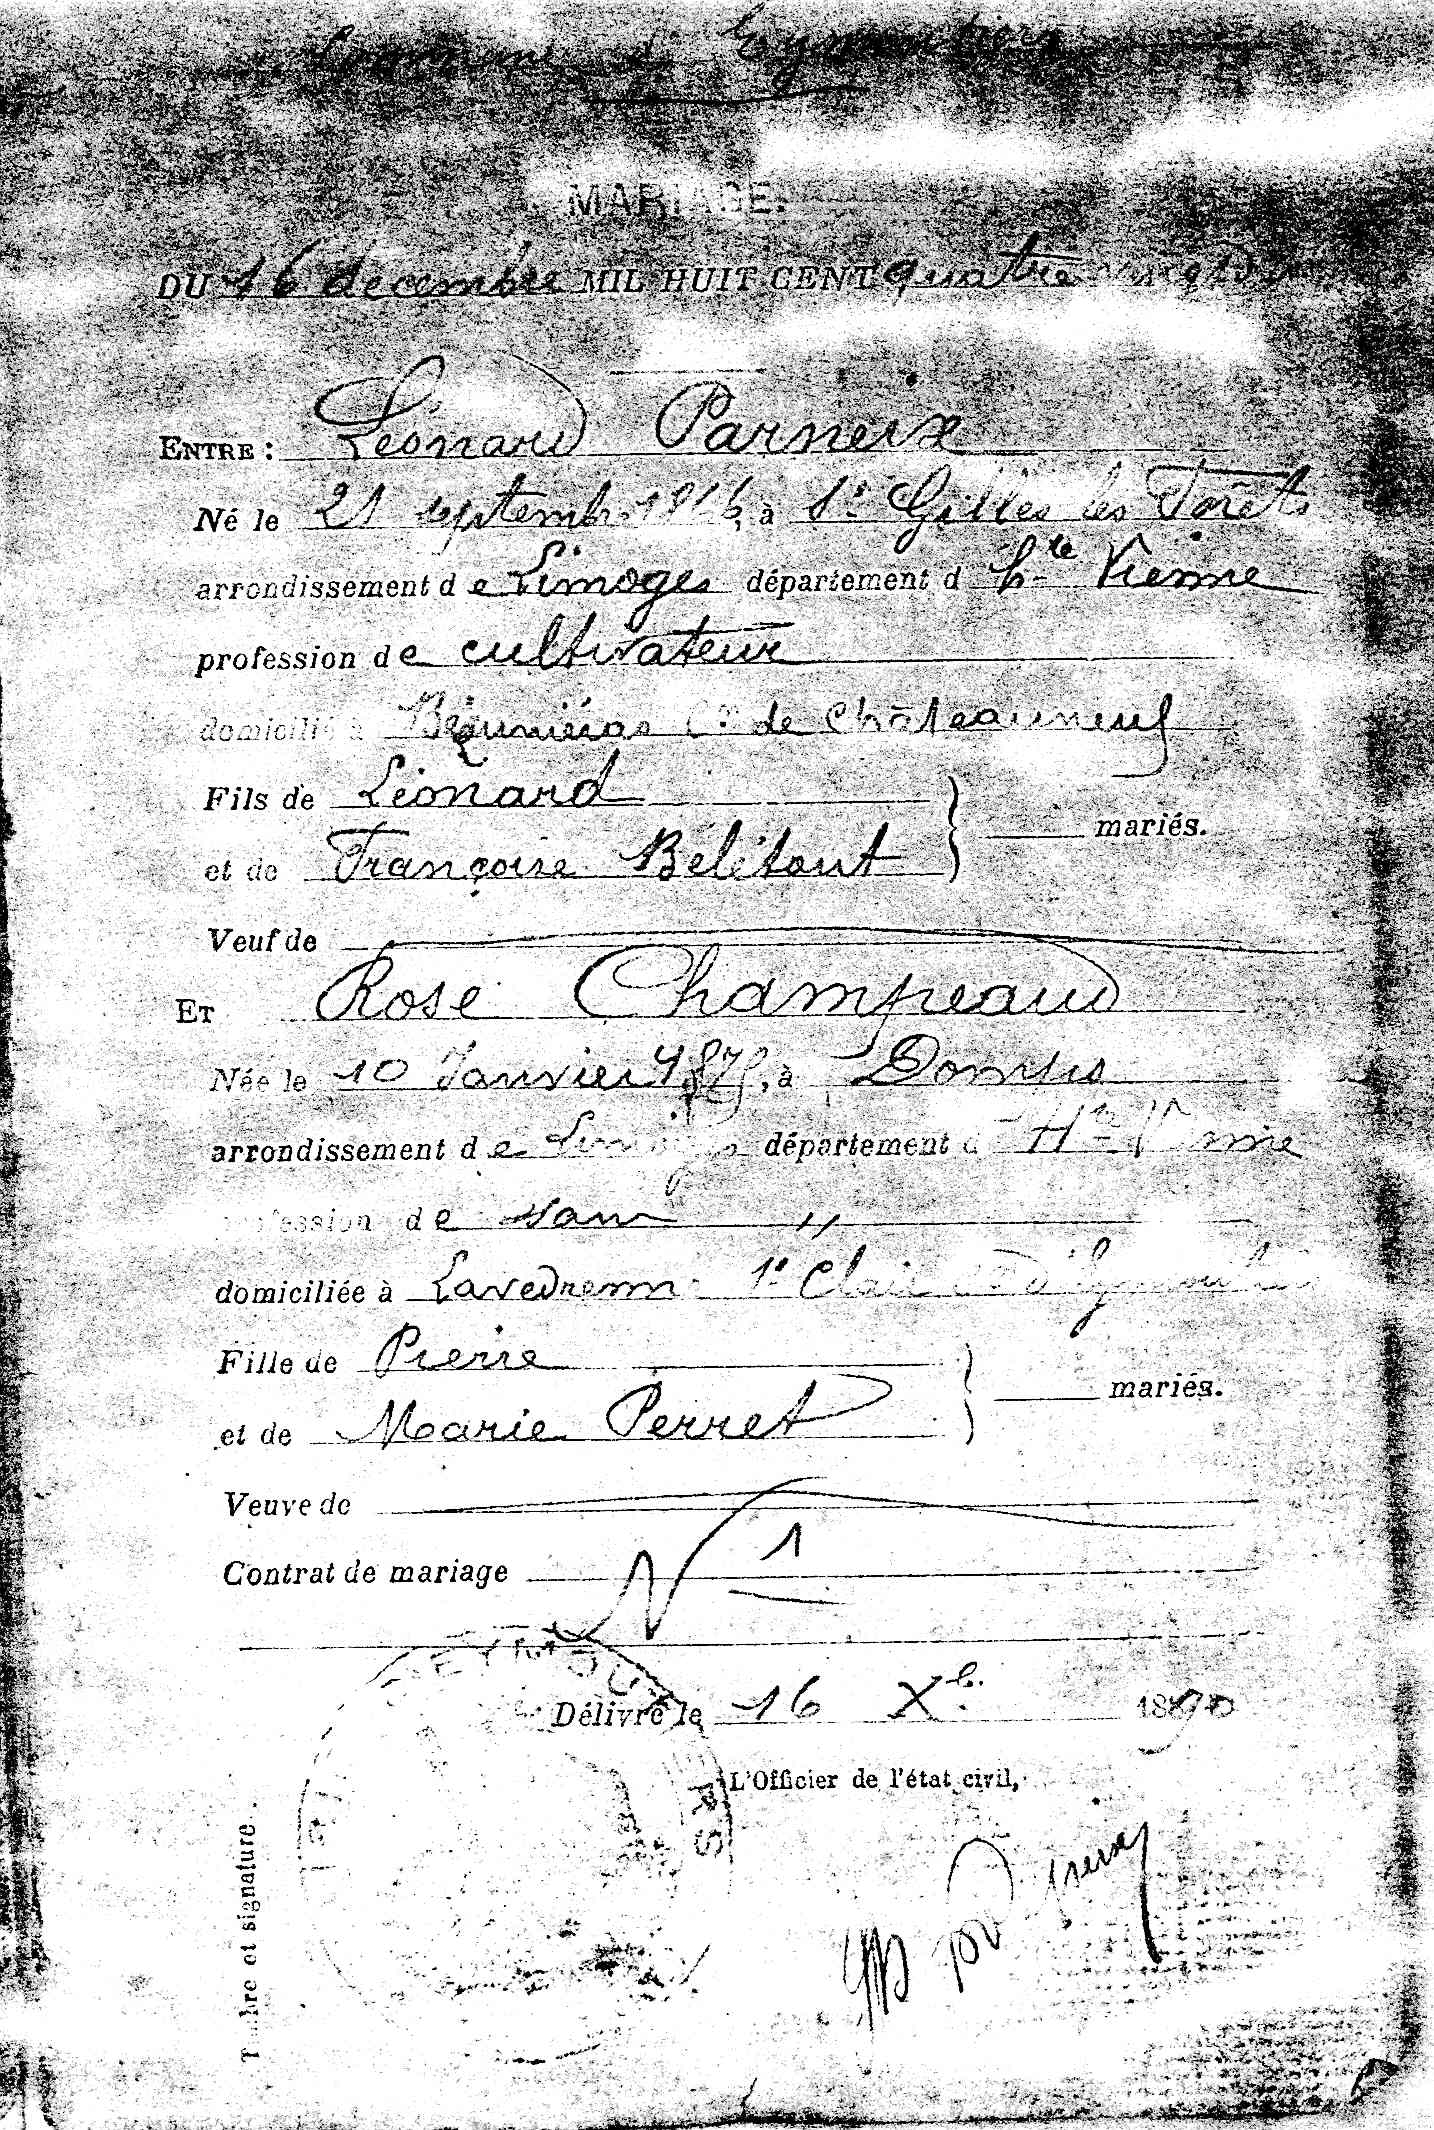 Commune d'Eymoutiers
MARIAGE.
DU 16 decembre MIL HUIT CENT quatre vingt dix
ENTRE : Léonard Parneix
Né le 21 septembre, à St Gilles les Forêts
arrondissement de Limoges département d Hte Vienne
profession de cultivateur
domicilié à Cne de Châteauneuf
Fils de Léonard
et de Françoise Bélétout
mariés.
Veuf de
ET Rose Champeaud
Née le 10 Janvier, à Domps
arrondissement de Limoges département d Hte Vienne
profession de sans "
domiciliée à Lavedrenne St Clair Cne d'Eymoutiers
Fille de Pierre
et de Marie Perret
mariés.
Veuve de
Contrat de mariage N 1
EYMOUTIERS
Délivré le 16 Xbe 1890
L'Officier de l'état civil,
Timbre et signature.